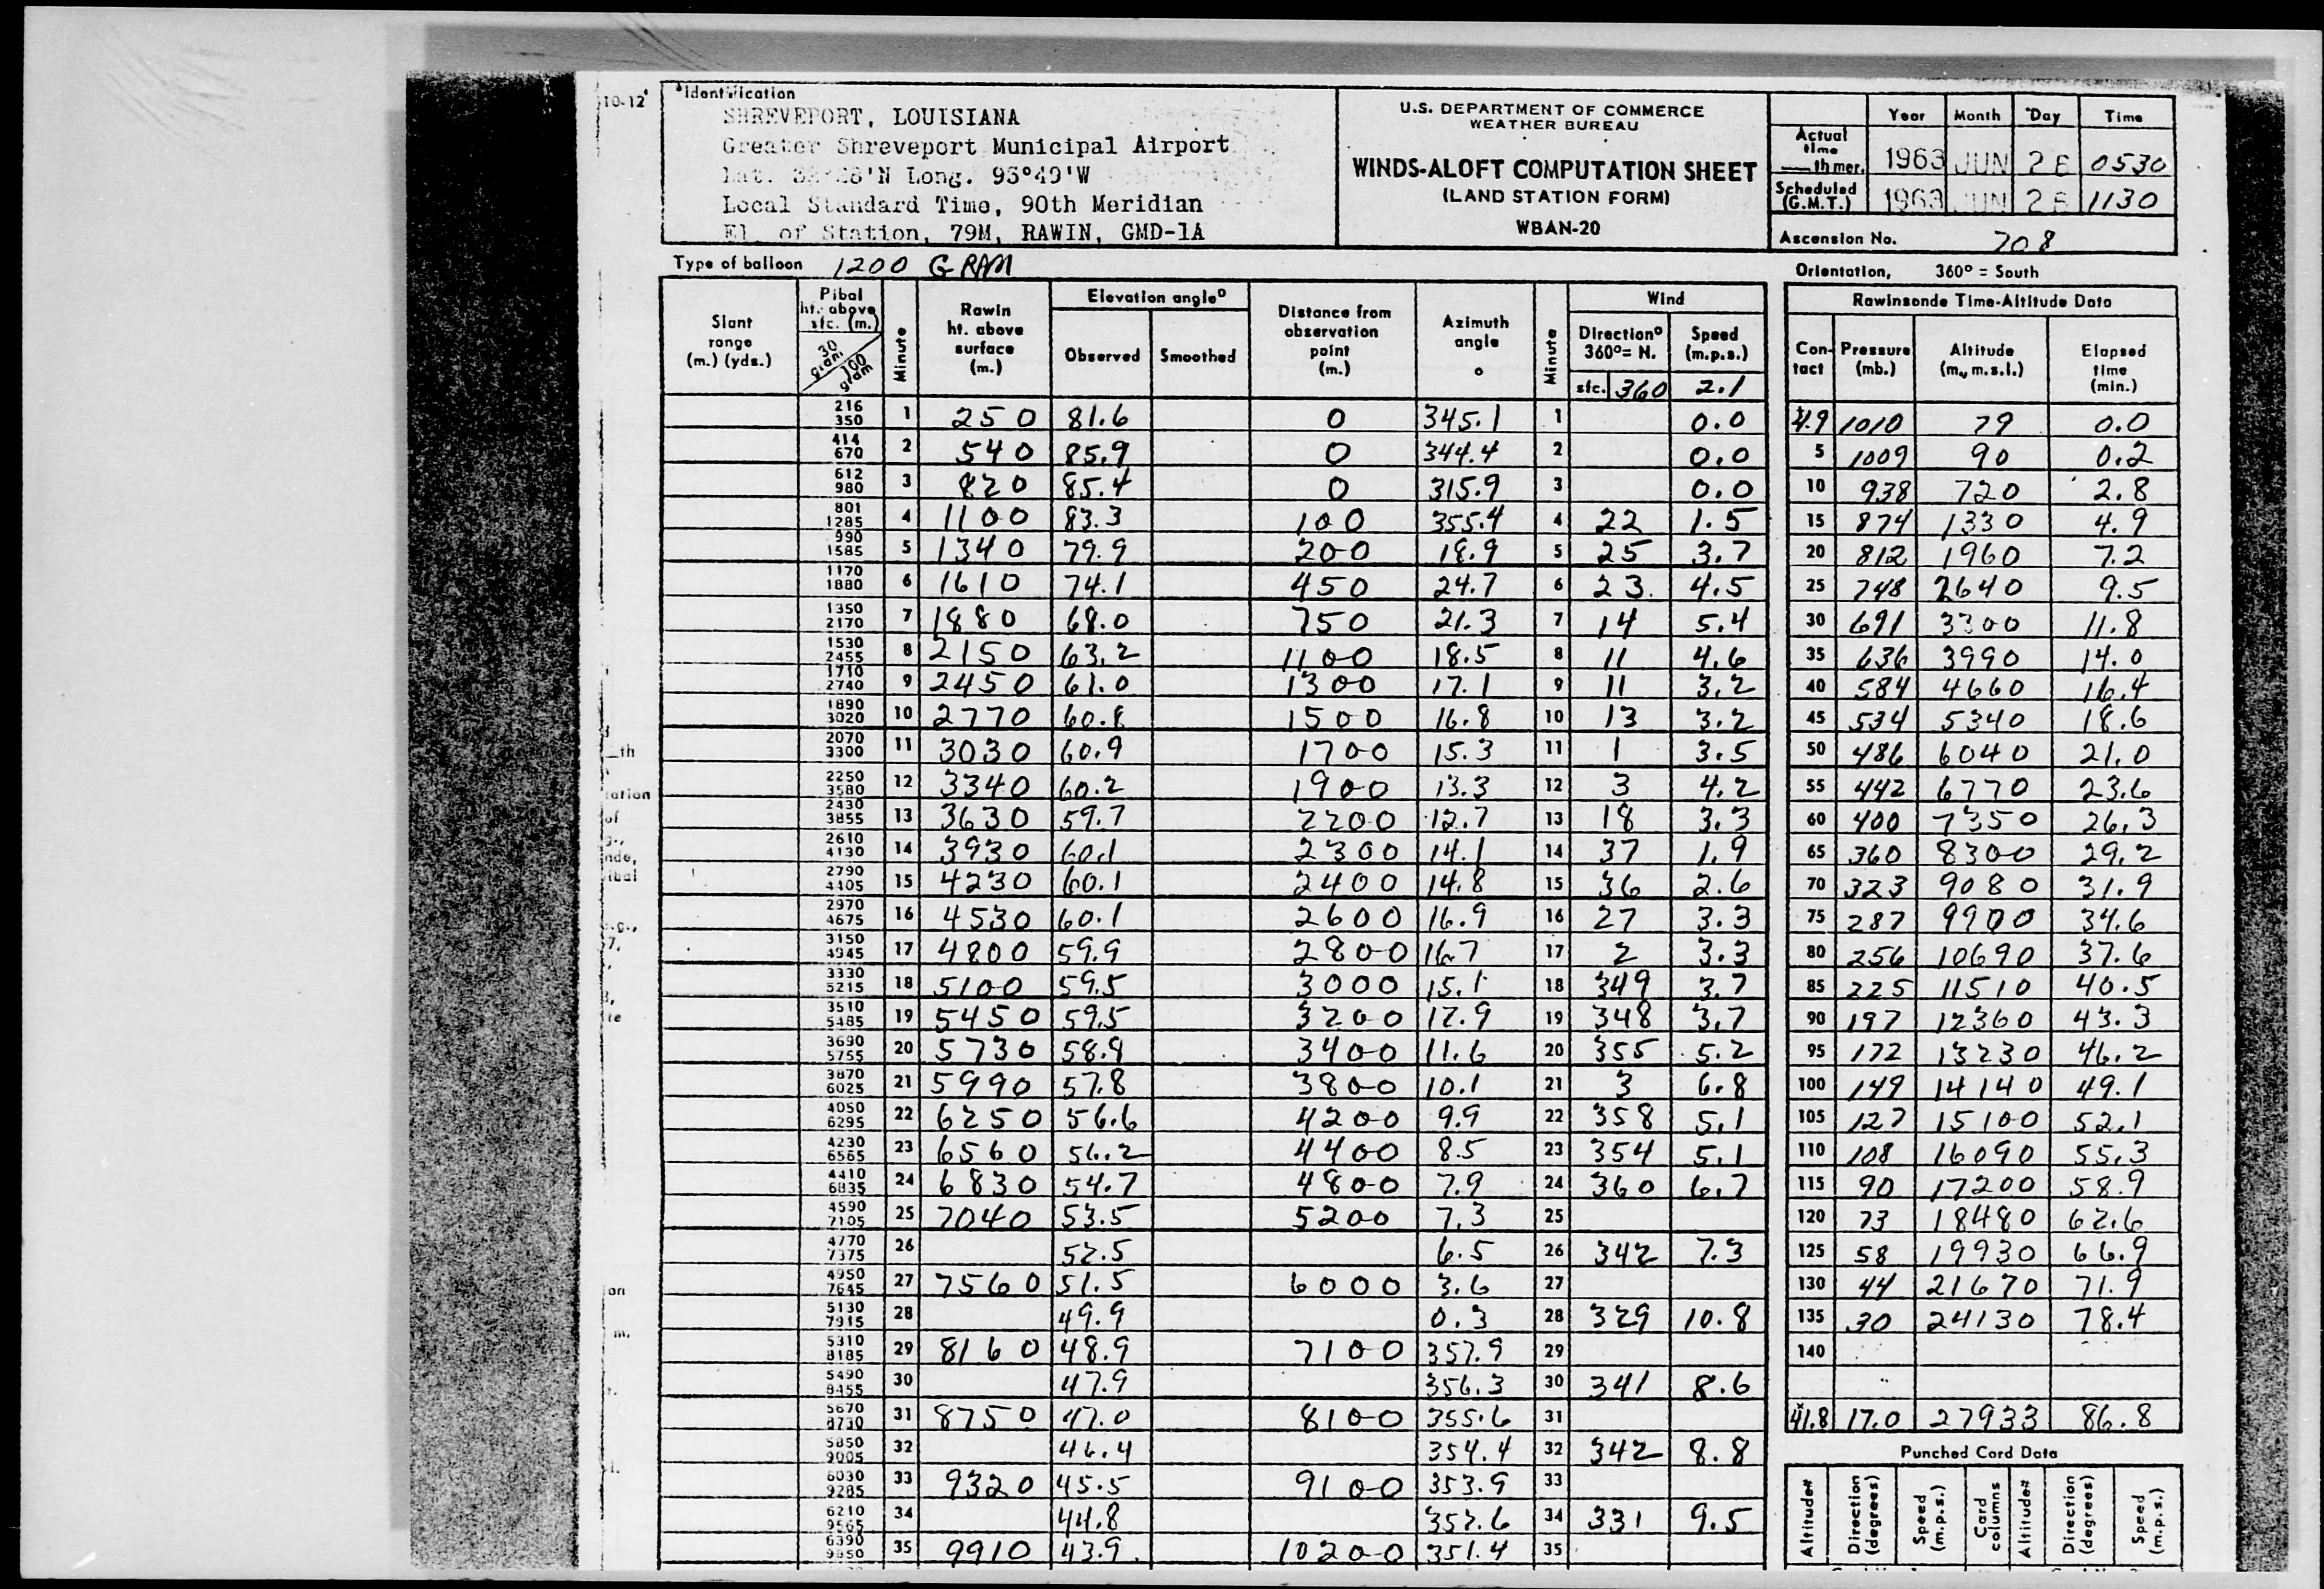 10-12
Identification
SHREVEPORT, LOUISIANA
Greater Shreveport Municipal Airport
Lat. Long. 93°49'W
Local Standard Time, 90th Meridian
El. of Station, 79M, RAWIN, GMD-1A
U.S. DEPARTMENT OF COMMERCE
WEATHER BUREAU
WINDS-ALOFT COMPUTATION SHEET
(LAND STATION FORM)
WBAN-20
Year Month Day Time
Actual time th mer. 1963 JUN 0530
Scheduled (G.M.T.) 1963 JUN 1130
Ascension No. 708
Type of balloon 1200 GRAM
Orientation, 360° = South
Slant range (m.) (yds.)
Pibal ht. above sfc. (m.) 30 gram 100 gram
Minute
Rawin ht. above surface (m.)
Elevation angle° Observed Smoothed
Distance from observation point (m.)
Azimuth angle °
Minute
Wind
Direction° 360°= N. Speed (m.p.s.)
sfc. 360 2.1
216 350 1 250 81.6 0 345.1 1 0.0
414 670 2 540 85.9 0 344.4 2 0.0
612 980 3 820 85.4 0 315.9 3 0.0
801 1285 4 1100 83.3 100 355.4 4 22 1.5
990 1585 5 1340 79.9 200 18.9 5 25 3.7
1170 1880 6 1610 74.1 450 24.7 6 23 4.5
1350 2170 7 1880 68.0 750 21.3 7 14 5.4
1530 2455 8 2150 63.2 1100 18.5 8 11 4.6
1710 2740 9 2450 61.0 1300 17.1 9 11 3.2
1890 3020 10 2770 60.8 1500 16.8 10 13 3.2
2070 3300 11 3030 60.9 1700 15.3 11 1 3.5
2250 3580 12 3340 60.2 1900 13.3 12 3 4.2
2430 3855 13 3630 59.7 2200 12.7 13 18 3.3
2610 4130 14 3930 60.1 2300 14.1 14 37 1.9
2790 4405 15 4230 60.1 2400 14.8 15 36 2.6
2970 4675 16 4530 60.1 2600 16.9 16 27 3.3
3150 4945 17 4800 59.9 2800 16.7 17 2 3.3
3330 5215 18 5100 59.5 3000 15.1 18 349 3.7
3510 5485 19 5450 59.5 3200 12.9 19 348 3.7
3690 5755 20 5730 58.9 3400 11.6 20 355 5.2
3870 6025 21 5990 57.8 3800 10.1 21 3 6.8
4050 6295 22 6250 56.6 4200 9.9 22 358 5.1
4230 6565 23 6560 56.2 4400 8.5 23 354 5.1
4410 6835 24 6830 54.7 4800 7.9 24 360 6.7
4590 7105 25 7040 53.5 5200 7.3 25
4770 7375 26 52.5 6.5 26 342 7.3
4950 7645 27 7560 51.5 6000 3.6 27
5130 7915 28 49.9 0.3 28 329 10.8
5310 8185 29 8160 48.9 7100 357.9 29
5490 8455 30 47.9 356.3 30 341 8.6
5670 8730 31 8750 47.0 8100 355.6 31
5850 9005 32 46.4 354.4 32 342 8.8
6030 9285 33 9320 45.5 9100 353.9 33
6210 9565 34 44.8 352.6 34 331 9.5
6390 9850 35 9910 43.9 10200 351.4 35
Rawinsonde Time-Altitude Data
Contact Pressure (mb.) Altitude (m., m.s.l.) Elapsed time (min.)
4.9 1010 79 0.0
5 1009 90 0.2
10 938 720 2.8
15 874 1330 4.9
20 812 1960 7.2
25 748 2640 9.5
30 691 3300 11.8
35 636 3990 14.0
40 584 4660 16.4
45 534 5340 18.6
50 486 6040 21.0
55 442 6770 23.6
60 400 7350 26.3
65 360 8300 29.2
70 323 9080 31.9
75 287 9900 34.6
80 256 10690 37.6
85 225 11510 40.5
90 197 12360 43.3
95 172 13230 46.2
100 149 14140 49.1
105 127 15100 52.1
110 108 16090 55.3
115 90 17200 58.9
120 73 18480 62.6
125 58 19930 66.9
130 44 21670 71.9
135 30 24130 78.4
140
41.8 17.0 27933 86.8
Punched Card Data
Altitude# Direction (degrees) Speed (m.p.s.) Card columns Altitude# Direction (degrees) Speed (m.p.s.)